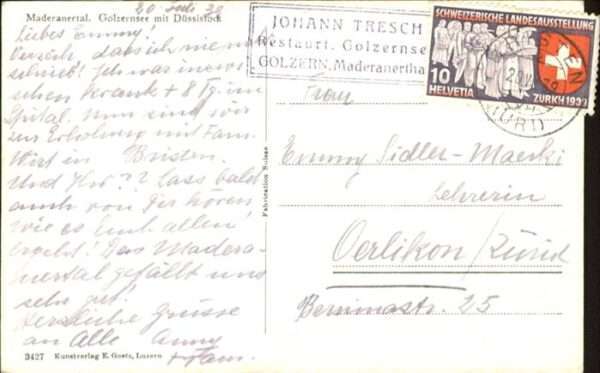 Maderanertal. Golzernsee mit Düssistock
20 Juli 39
liebes Emmy
Verzeih, dass ich nie mehr
schrieb! Ich war inzwi
schen krank + 8 Tg. im
Spital. Nun sind wir
zur Erholung mit Fam.
Wirt in Bristen.
Und Ihr?? Lass bald
auch von Dir hören,
wie es Euch allen
ergeht! Das Madera-
nertal gefällt uns
sehr gut!
Herzliche Grüsse
an Alle Anny
+ Fam.
3427 Kunstverlag E. Goetz, Luzern
Fabrication Suisse
JOHANN TRESCH
Restaurt. Golzernsee
GOLZERN, Maderanertha
SCHWEIZERISCHE LANDESAUSSTELLUNG
10
HELVETIA ZÜRICH 1939
(URI)
Frau
Emmy Sidler-Maerki
Lehrerin
Oerlikon/Zürich
Berninastr. 25